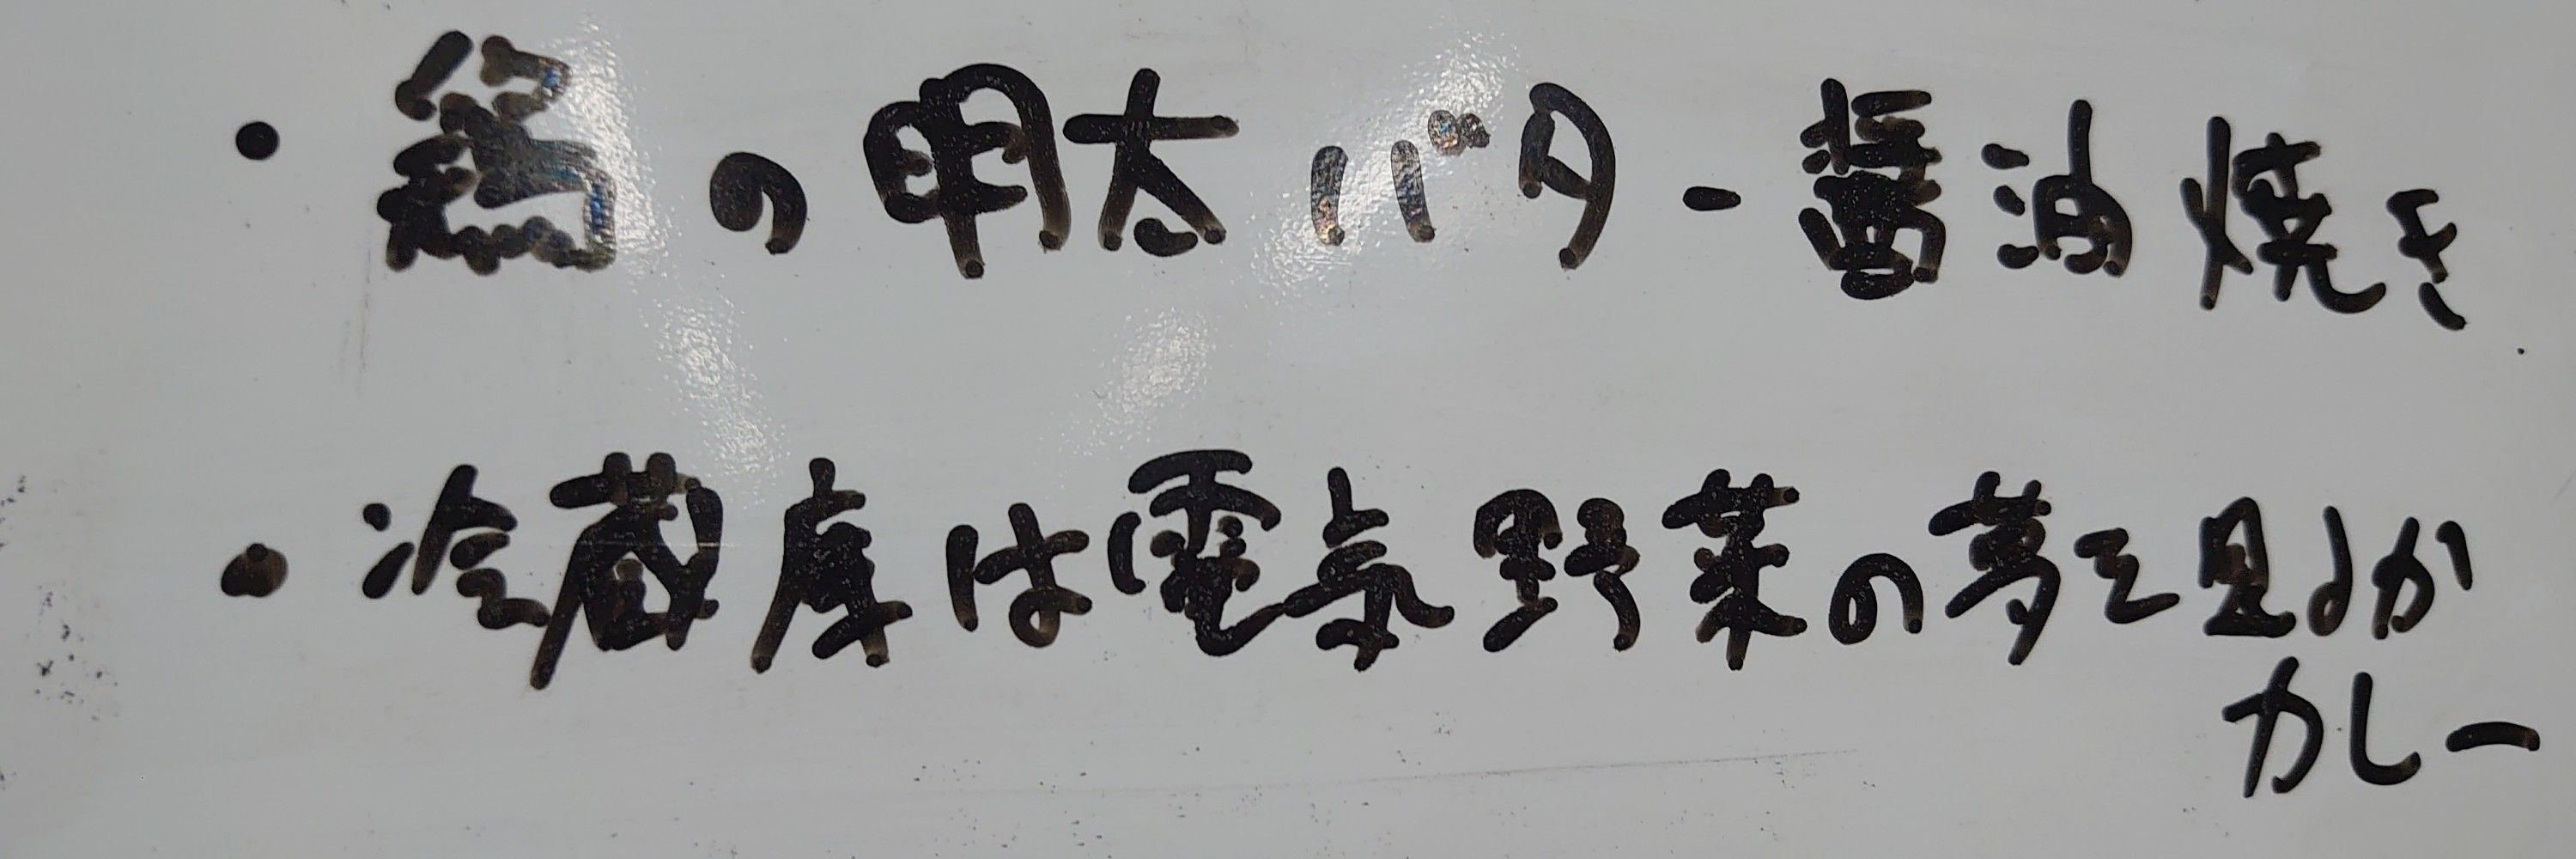 ・鶏の明太バター醤油焼き
・冷蔵庫は電気野菜の夢を見るか
カレー